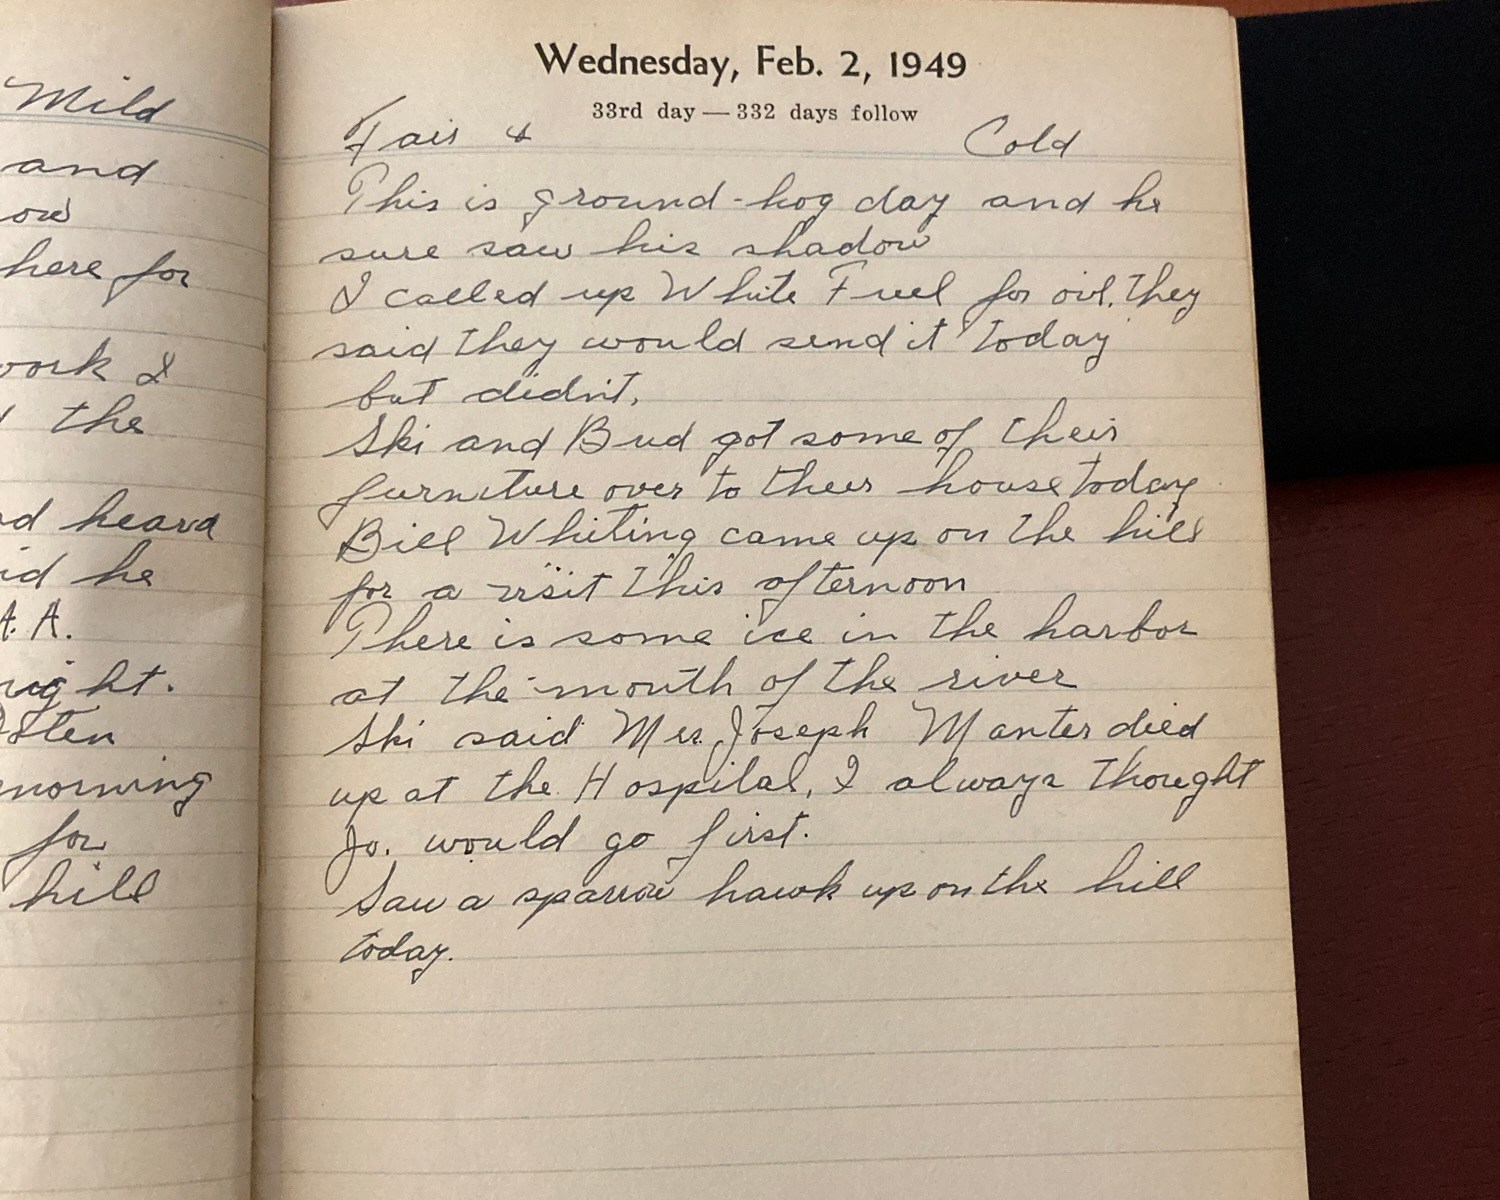 Mild
and
ow
here for
work I
the
d heard
id he
A. A.
right.
morning
for
hill
Wednesday, Feb. 2, 1949
33rd day — 332 days follow
Fair & Cold
This is ground-hog day and he
sure saw his shadow
I called up White Fuel for oil. They
said they would send it today
but didn't.
Ski and Bud got some of their
furniture over to their house today
Bill Whiting came up on the hill
for a visit this afternoon
There is some ice in the harbor
at the mouth of the river
Ski said Mrs. Joseph Manter died
up at the Hospital, I always thought
Jo. would go first.
Saw a sparrow hawk up on the hill
today.